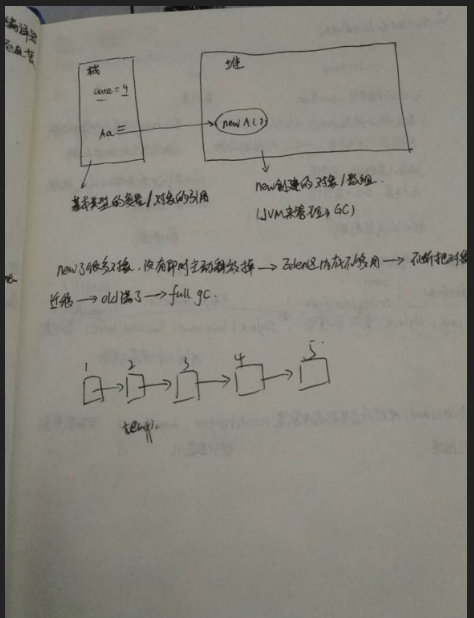 栈
堆
Aa =
new A()
基本类型的变量/对象的引用
new创建的对象/数组
(JVM来管理,GC)
new了很多对象,没有即时主动释放掉→Eden区内存不够用→不断把对象
迁移→old满了→full gc.
1 2 3 4 5
temp